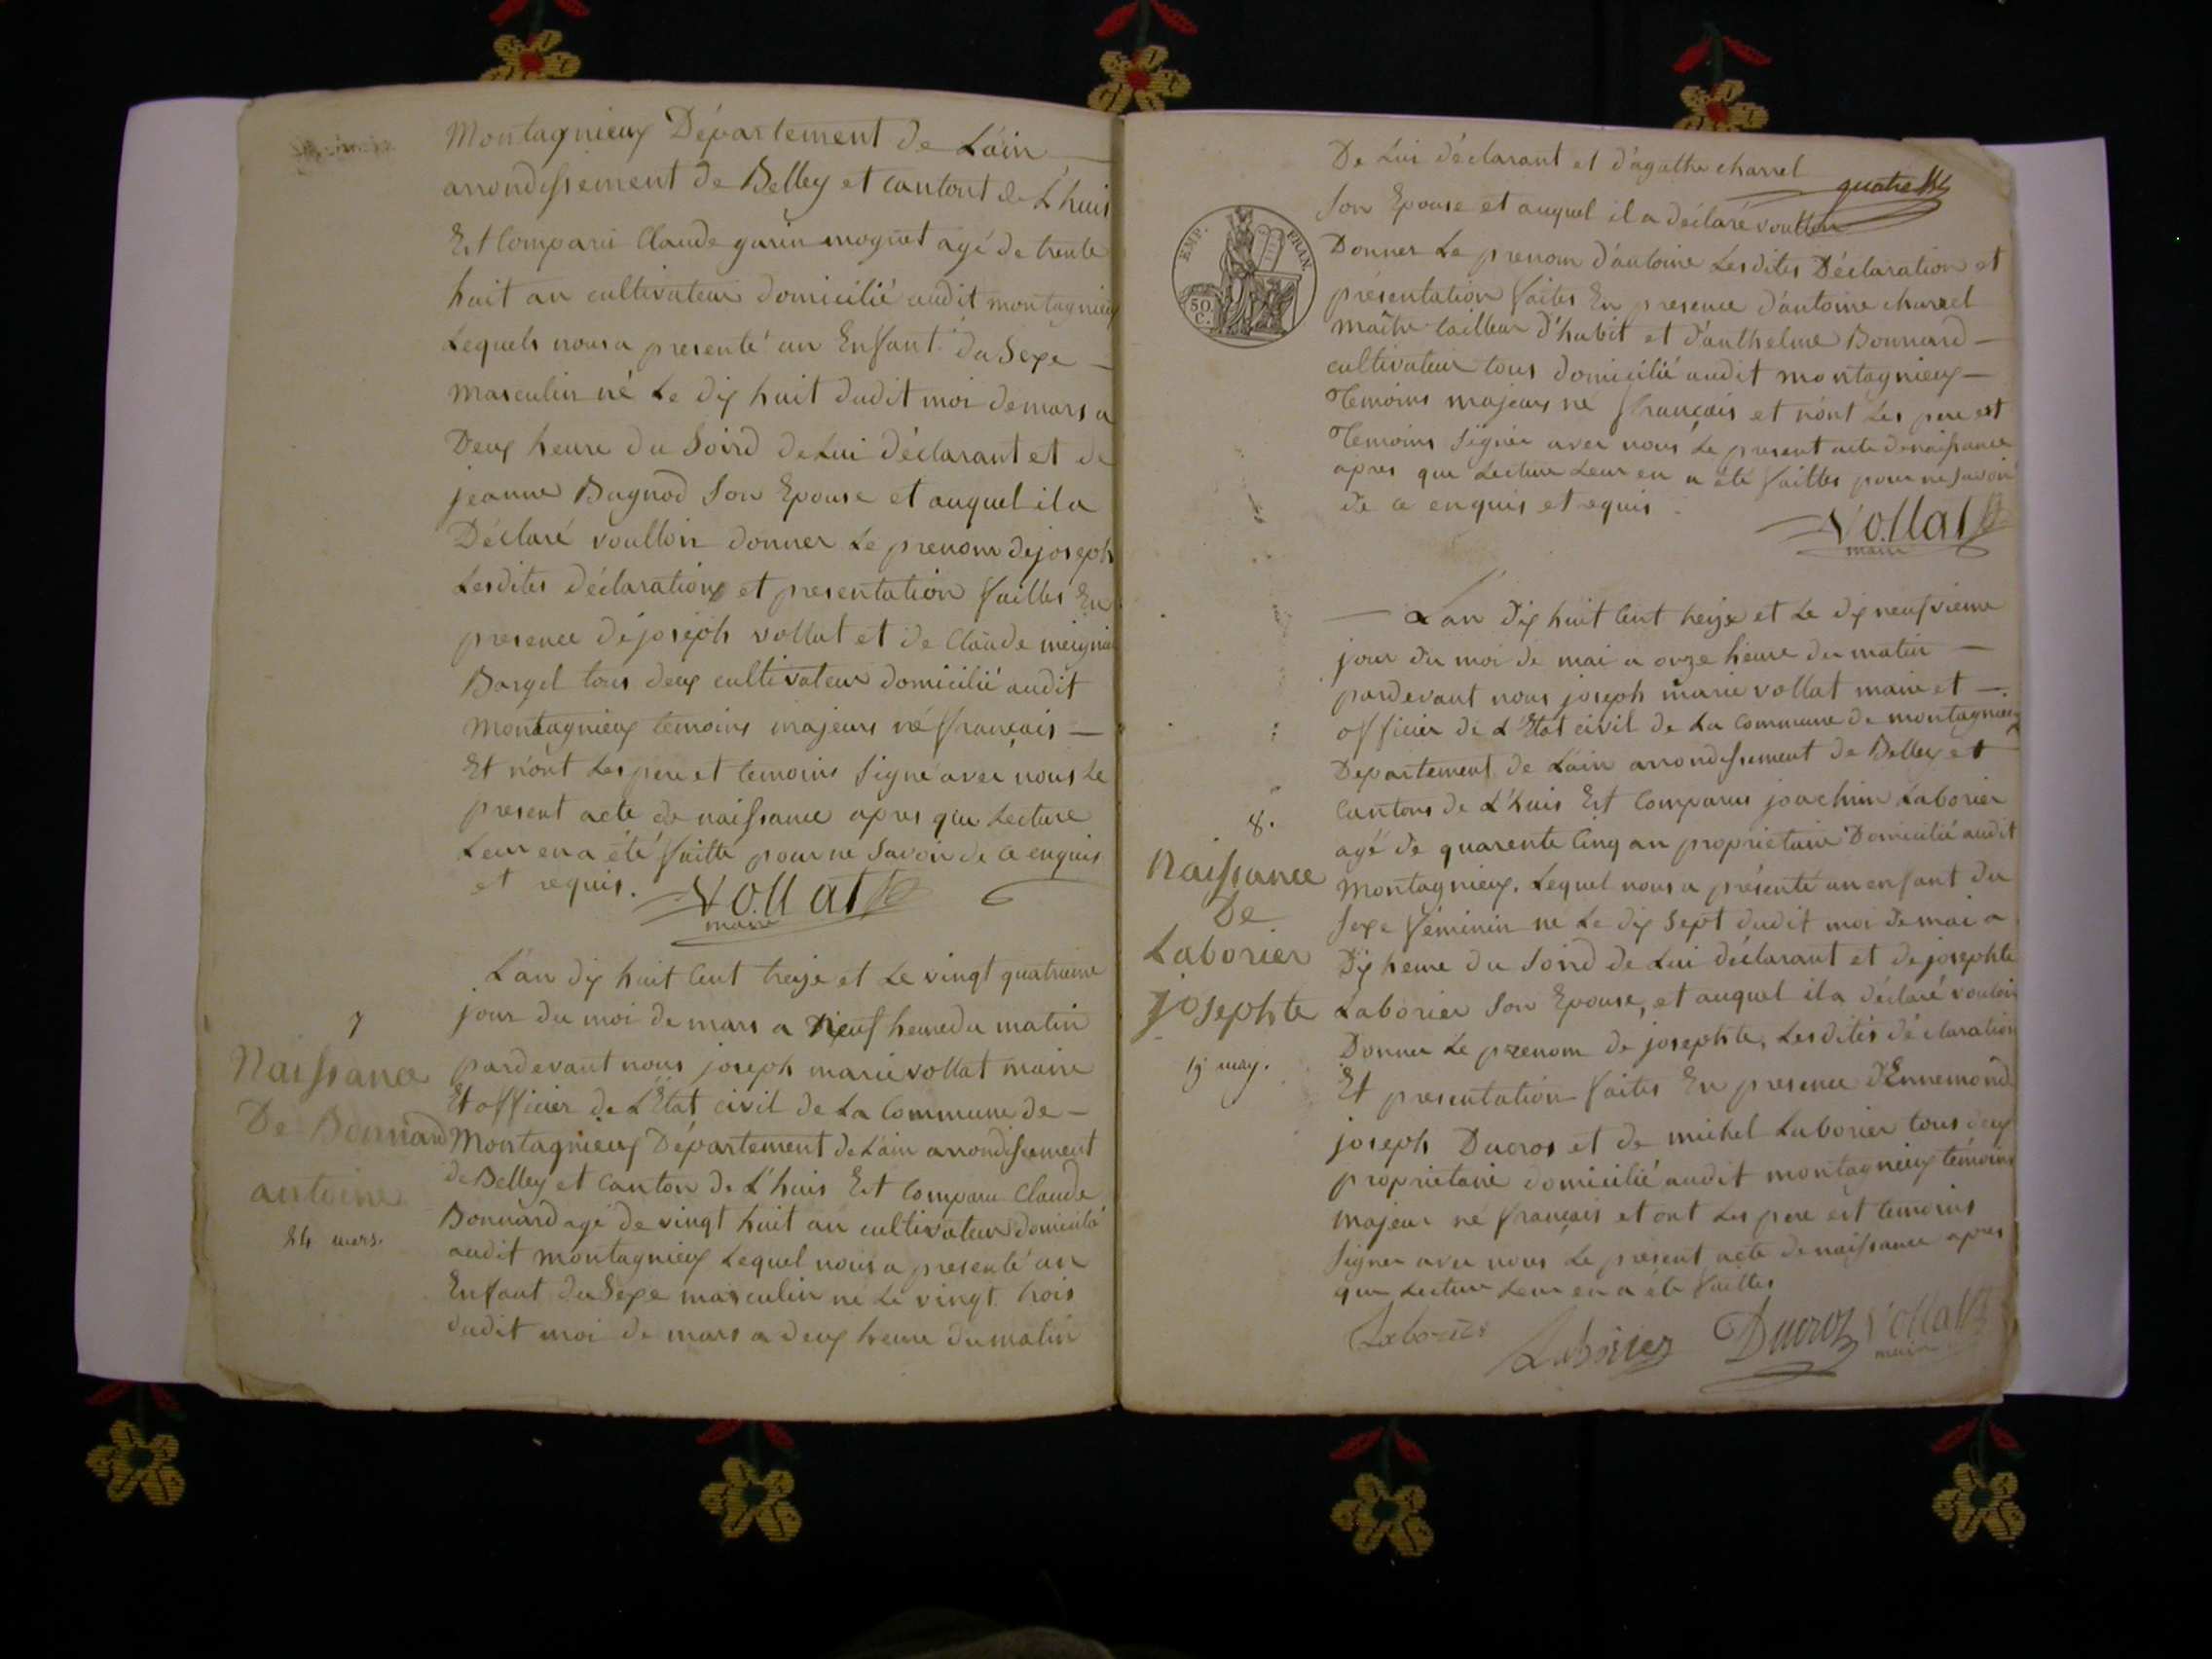 Montagnieux Département de Lain
arrondissement de Belley et cantont de L'huis
Est Comparu Claude garin mognet agé de trente
huit an cultivateur domicilié audit montagnieux
Lequels nous a presenté un Enfant du Sexe
masculin né Le dix huit dudit moi de mars a
Deux heure du Soird de Lui déclarant et de
jeanne Bugnod Son Epouse et auquel il a
Déclaré voulloir donner Le prenom de joseph
Lesdites déclarations et presentation faittes En
presence de joseph vollat et de Claude
Bargel tous deux cultivateur domicilié audit
montagnieux temoins majeurs né français
Et n'ont Les pere et temoins Signé avec nous Le
present acte de naissance apres que Lecture
Leur en a été faitte pour ne Savoir de ce enquis
et requis. Vollat
maire
L'an dix huit Cent treize et Le vingt quatrieme
jour du moi de mars a Neuf heure du matin
pardevant nous joseph marie vollat maire
Et officier de L'Etat civil de La Commune de
Montagnieux Département de Lain arrondissement
de Belley et Canton de L'huis Est Comparu Claude
Bonnard agé de vingt huit an cultivateur domicilié
audit montagnieux Lequel nous a presenté un
Enfant du Sexe masculin né Le vingt trois
dudit moi de mars a deux heure du matin
7
Naissance
De Bonnard
antoine
24 mars.
De Lui déclarant et d'agathe charrel
quatre
Son Epouse et auquel il a déclaré voulloir
Donner Le prenom d'antoine Lesdites Déclaration et
présentation faites En presence d'antoine charrel
maître tailleur d'habit et d'anthelme Bonnard
cultivateur tous domicilié audit montagnieux
Temoins majeurs né français et n'ont Les pere est
Temoins Signer avec nous Le present acte de naissance
apres que Lecture Leur en a été faittes pour ne Savoir
de ce enquis et requis.
Vollat
maire
EMP. FRAN.
50
C.
L'an dix huit Cent treize et Le dix neufvieme
jour du moi de mai a onze heure du matin
pardevant nous joseph marie vollat maire et
officier de L'Etat civil de La Commune de montagnieux
Departement de Lain arrondissement de Belley et
Cantons de L'huis Est Comparus joachim Laborier
agé de quarente Cinq an proprietaire Domicilié audit
Montagnieux. Lequel nous a présenté un enfant du
Sexe féminin né Le dix Sept dudit moi de mai a
Dix heure du Soird de Lui déclarant et de josephte
Laborier Son Epouse, et auquel il a déclaré vouloir
Donner Le prenom de josephte, Lesdites déclaration
Et presentation faites En presence d'Ennemond
joseph Ducros et de michel Laborier tous deux
proprietaire domicilié audit montagnieux témoins
Majeur né français et ont Les pere est temoins
Signer avec nous Le présent acte de naissance apres
que Lecture Leur en a été faittes
Laborier Laborier Ducroz Vollat
maire
8.
Naissance
De
Laborier
josephte
19 may.